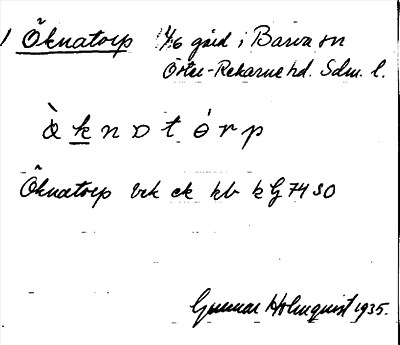 1 Öknatorp 1/6 gård i Barva sn
Öster-Rekarne hd. Sdm. l.
ò̀ k n ɒ t ó r p
Öknatorp urk ek kb kG 7430
Gunnar Holmquist 1935.